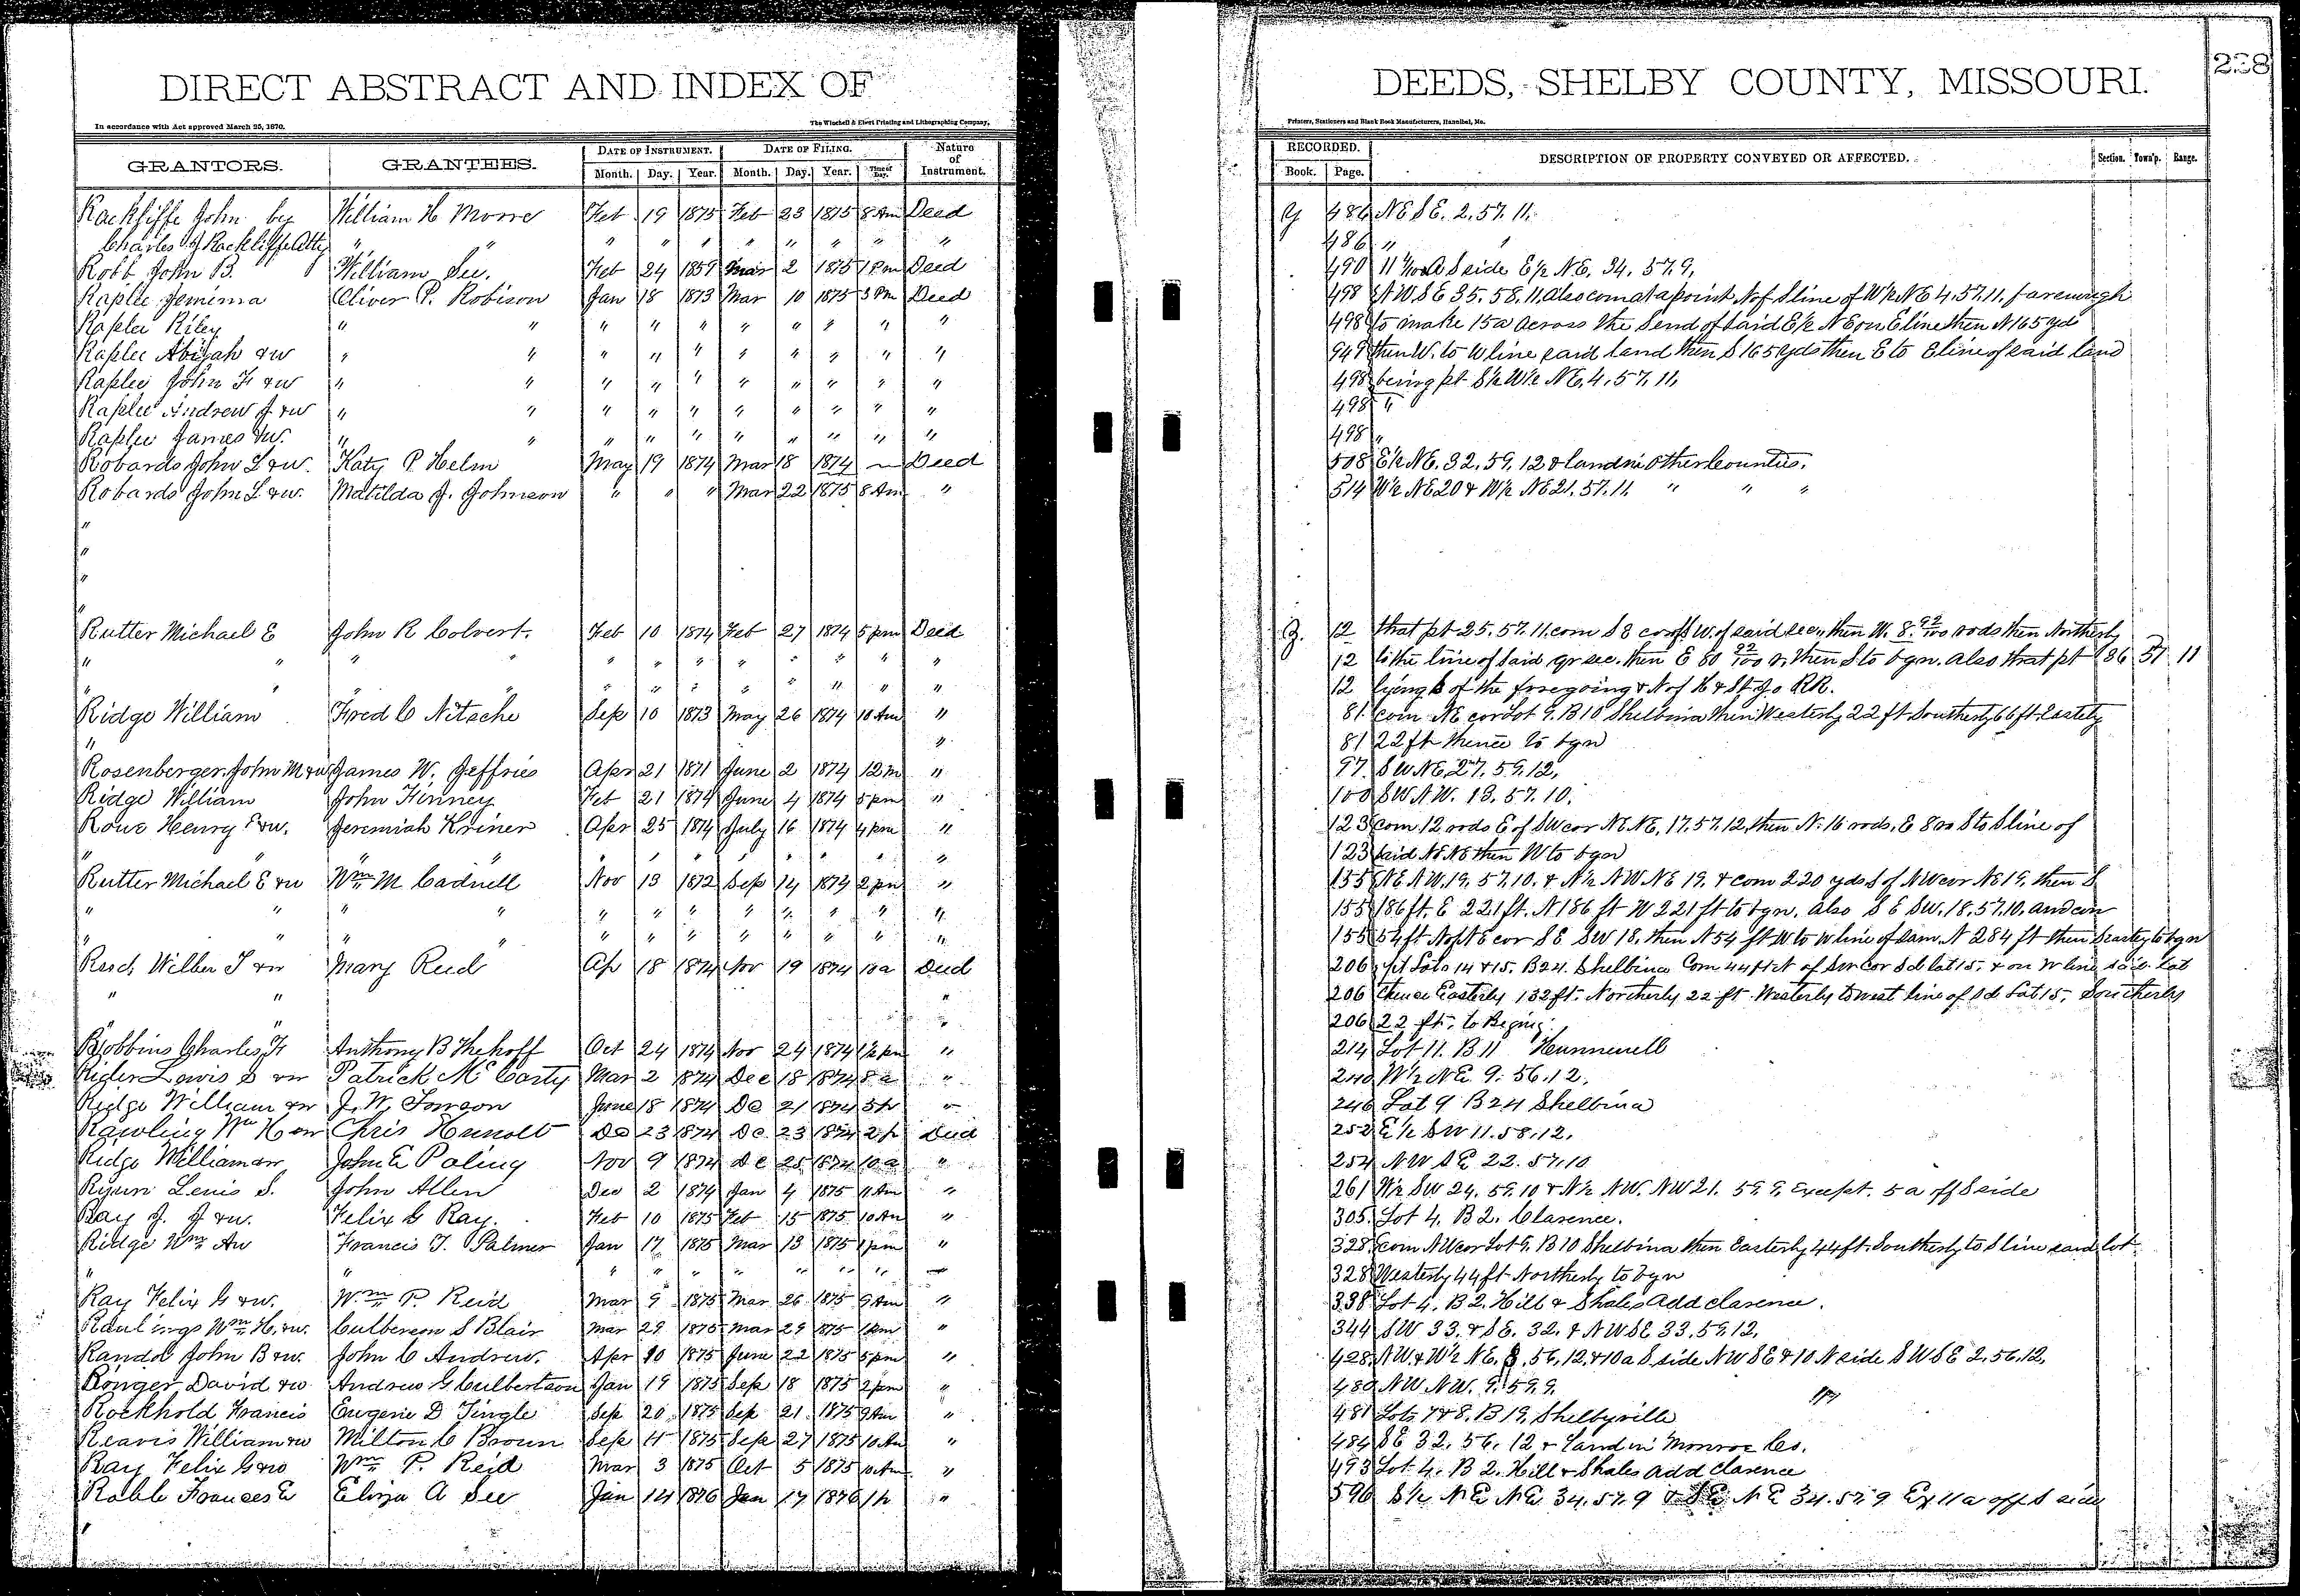 DIRECT ABSTRACT AND INDEX OF DEEDS, SHELBY COUNTY, MISSOURI. 238
In accordance with Act approved March 25, 1870. The Winchell & Ebert Printing and Lithographing Company, Printers, Stationers and Blank Book Manufacturers, Hannibal, Mo.
GRANTORS. GRANTEES. DATE OF INSTRUMENT. DATE OF FILING. Nature of Instrument. RECORDED. DESCRIPTION OF PROPERTY CONVEYED OR AFFECTED. Section. Town'p. Range.
Month. Day. Year. Month. Day. Year. Time of Day. Book. Page.
Rackliffe John by William H Morre Feb 19 1875 Feb 23 1875 8 Am Deed Y 486 NE SE. 2. 57. 11.
Charles J Rackliffe Atty " " " " " " " " " " 486 " "
Robb John B. William See. Feb 24 1859 Mar 2 1875 1 Pm Deed 490 11 S side E½ N.E. 34. 57. 9.
Raplee Jemima Oliver P. Robison Jan 18 1873 Mar 10 1875 3 Pm Deed 498 NW. SE 35. 58. 11. Also com at a point N of S line of W½ NE 4. 57. 11. far enough
Raplee Riley " " " " " " " " " " 498 to make 15a across the S end of said E½ NE on E line then N 165 yds
Raplee Abijah & w " " " " " " " " " " 949 then W. to W line said land then S 165 yds then E to E line of said land
Raplee John F & w " " " " " " " " " " 498 being pt S½ W½ NE. 4. 57. 11.
Raplee Andrew J & w " " " " " " " " " " 498 "
Raplee James & w. " " " " " " " " " " 498 "
Robards John L & w. Katy P Helm May 19 1874 Mar 18 1874 — Deed 508 E½ NE. 32. 59. 12 & land in Other Counties.
Robards John L & w. Matilda J. Johnson " " " Mar 22 1875 8 Am " 514 W½ NE 20 & W½ NE 21. 57. 11. " " "
"
"
"
"
Rutter Michael E John R Colvert. Feb 10 1874 Feb 27 1874 5 pm Deed Z. 12 that pt 25. 57. 11. com S E cor of W. of said sec, then W. 8. 92/100 rods then Northerly
" " " " " " " " " " " " 12 to the line of said qr sec. then E 80 92/100 r, then S to bgn. Also that pt 36 57 11
" " " " " " " " " " 12 lying S of the foregoing & N of H & St Jo RR.
Ridge William Fred C Nitsche Sep 10 1873 May 26 1874 10 Am " 81 com NE cor Lot 9. B 10 Shelbina then Westerly 22 ft Southerly 66 ft Eastely
" " 81 22 ft thence to bgn
Rosenberger John M & w James W. Jeffries Apr 21 1871 June 2 1874 12 m " 97 SW NE, 27. 59. 12,
Ridge William John Finney Feb 21 1874 June 4 1874 5 pm " 100 SW NW. 13. 57. 10.
Rouse Henry & w. Jeremiah Kriner Apr 25 1874 July 16 1874 4 pm " 123 com 12 rods E of SW cor NE NE, 17. 57. 12, then N. 16 rods, E 8 ro S to S line of
" " " " " " " " " " " " 123 said NE NE then W to bgn
Rutter Michael E & w Wm M Cadwell Nov 13 1872 Sep 14 1874 2 pm " 155 NE NW. 19. 57. 10. & N½ NW NE 19. & com 220 yds S of NW cor NE 19. then S
" " " " " " " " " " " " 155 186 ft. E 221 ft. N 186 ft W 221 ft to bgn. Also S E SW. 18. 57. 10. and com
" " " " " " " " " " " " 155 54 ft N of NE cor SE SW 18, then N 54 ft W. to W line of sam N 284 ft then to bgn
Reed, Wilber T & w Mary Reid Ap 18 1874 Nov 19 1874 10 a Deed 206 pt Lots 14 & 15. B 24. Shelbina Com 44 ft N of SW cor Sd lot 15, & on W line said Lot
" " " 206 thence Easterly 132 ft. Northerly 22 ft Westerly to west line of Sd Lot 15, Southerly
" " 206 22 ft, to Begnig.
Robbins Charles F Anthony B Thehoff Oct 24 1874 Nov 24 1874 1½ pm " 214 Lot 11. B 11 Hunnewell
Rider Lewis D & w Patrick McCarty Mar 2 1874 Dec 18 1874 8 a " 240 W½ NE 9. 56. 12.
Ridge William & w J. W. Towson June 18 1874 De 21 1874 3 p " 246 Lot 9 B 24 Shelbina
Rawling Wm H & w Chris Hunolt De 23 1874 De 23 1874 2 p Deed 252 E½ SW 11. 58. 12.
Ridge William & w John E Poling Nov 9 1874 De 25 1874 10 a " 254 NW SE 22. 57. 10
Ryun Lewis S. John Allen Dec 2 1874 Jan 4 1875 11 Am " 261 W½ SW 24. 59. 10 & N½ NW. NW 21. 59. 9. Except. 5 a off S side
Ray J. J & w. Felix G Ray. Feb 10 1875 Feb 15 1875 10 Am " 305 Lot 4. B 2. Clarence.
Ridge Wm & w Francis T. Palmer Jan 17 1875 Mar 13 1875 1 pm " 328 com NW cor Lot 9. B 10 Shelbina then Easterly 44 ft. Southerly to S line said lot
" " " " " " " " " " 328 Westerly 44 ft Northerly to bgn
Ray Felix G & w. Wm P. Reid Mar 9 1875 Mar 26 1875 9 Am " 338 Lot 4. B 2. Hill & Shales Add Clarence.
Raulings Wm H. & w. Culberson S Blair Mar 29 1875 Mar 29 1875 1 pm " 344 SW 33. & SE. 32. & NW SE 33. 59. 12.
Randol John B & w. John C Andrew. Apr 10 1875 June 22 1875 5 pm " 428 NW. & W½ NE. 56. 12. & 10 a S side NW SE & 10 N side SW SE 2. 56. 12.
Ronger David & w Andrew G Culbertson Jan 19 1875 Sep 18 1875 2 pm " 480 NW NW. 9. 59. 9.
Rockhold Francis Eugene D Tingle Sep 20 1875 Sep 21 1875 9 Am " 481 Lots 7 & 8. B 19, Shelbyville
Reavis William & w Milton C Broun Sep 4 1875 Sep 27 1875 10 Am " 484 SE 32. 56. 12 & Land in Monroe Co.
Ray Felix G & w Wm P. Reid Mar 3 1875 Oct 5 1875 10 Am " 493 Lot 4. B 2. Hill & Shales Add Clarence
Robb Frances E Eliza A See Jan 14 1876 Jan 17 1876 1 p " 596 S½ NE NE 34. 57. 9 & SE NE 34. 57. 9 Ex 11 a off S side